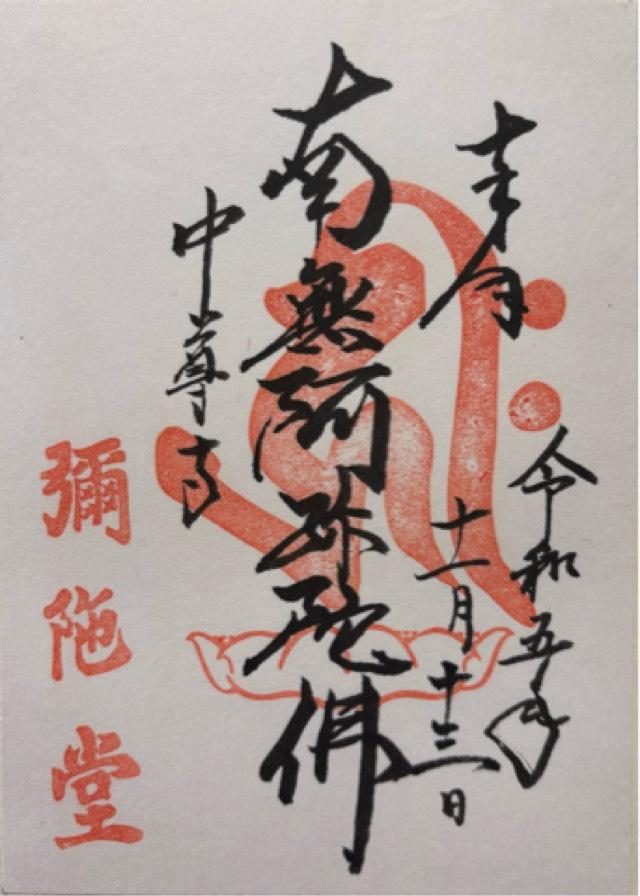 奉拝
令和五年
十一月十三日
南無阿弥陀佛
中尊寺
彌陀堂